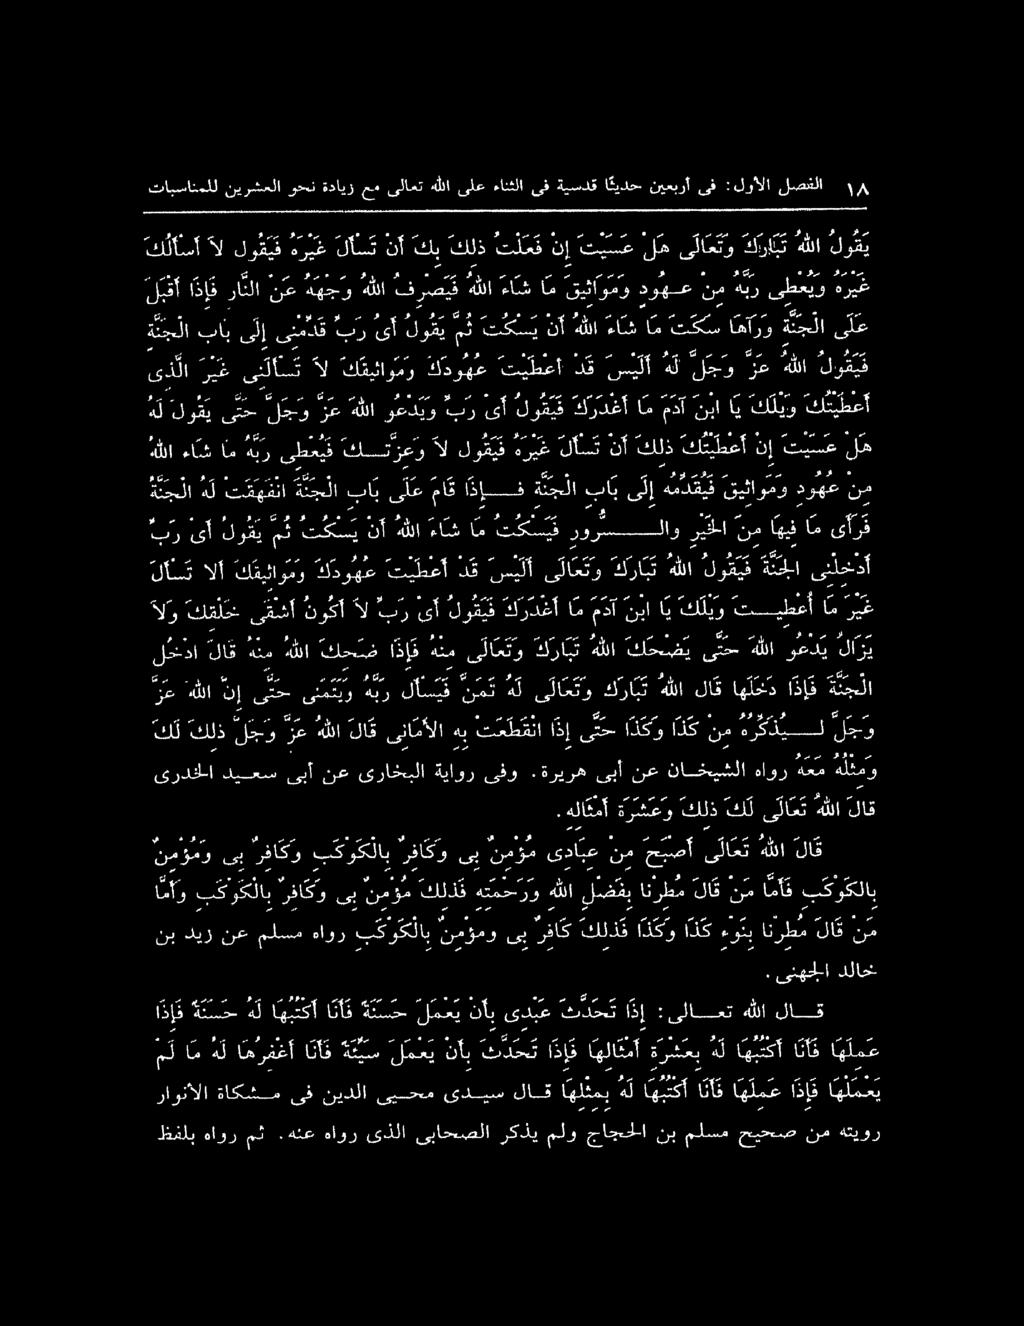 ١٨ الفصل الأول: فى أربعين حديثا قدسية فى الثناء على الله تعالى مع زيادة نحو العشرين للمناسبات
يَقُولُ اللهُ تَبَارَكَ وَتَعَالَى هَلْ عَسَيْتَ إِنْ فَعَلْتُ ذلِكَ بِكَ أَنْ تَسْأَلَ غَيْرَهُ فَيَقُول لاَ أسأَلُكَ
غَيْرَهُ وَيُعْطِى رَبَّهُ مِنْ عـهُودٍ وَمَوَاثِيقَ مَا شَاءَ اللهُ فَيَصْرِفُ اللهُ وَجْهَهُ عَنِ النَّارِ فَإِذَا أَقْبَلَ
عَلَى الْجَنَّةِ وَرَآهَا سَكَتَ مَا شَاءَ اللهُ أَنْ يَسْكُتَ ثُمَّ يَقُولُ أَىْ رَبِّ قَدِّمْنِى إِلَى بَابِ الْجَنَّةِ
فَيَقُولُ اللهُ عَزَّ وَجَلَّ لَهُ أَلَيْسَ قَدْ أَعْطَيْتَ عُهُودَكَ وَمَوَاثِيقَكَ لاَ تَسْأَلُنِى غَيْرَ الَّذِى
أَعْطَيْتُكَ وَيْلَكَ يَا ابْنَ آدَمَ مَا أَغْدَرَكَ فَيَقُولُ أَىْ رَبِّ وَيَدْعُو اللهَ عَزَّ وَجَلَّ حَتَّى يَقُولَ لَهُ
هَلْ عَسَيْتَ إِنْ أَعْطَيْتُكَ ذلِكَ أَنْ تَسْأَلَ غَيْرَهُ فَيَقُول لاَ وَعِزَّتِـكَ فَيُعْطِى رَبَّهُ مَا شَاءَ اللهُ
مِنْ عُهُودٍ وَمَوَاثِيقَ فَيُقَدِّمُه إِلَى بَابِ الْجَنَّةِ فـإِذَا قَامَ عَلَى بَابِ الْجَنَّةِ انْفَهَقَتْ لَهُ الْجَنَّةُ
فَرَأَى مَا فِيهَا مِنَ الْخَيْرِ والـسُّرورِ فَيَسْكُتُ مَا شَاءَ اللهُ أَنْ يَسْكُتُ ثُمَّ يَقُولُ أَىْ رَبِّ
أَدْخِلْنِى الجَنَّةَ فَيَقُولُ اللهُ تَبَارَكَ وَتَعَالَى أَلَيْسَ قَدْ أَعْطَيْتَ عُهُودَكَ وَمَوَاثِيقَكَ أَلاَّ تَسْأَلَ
غَيْرَ مَا أُعْطِيـتَ وَيْلَكَ يَا ابْنَ آدَمَ مَا أَغْدَرَكَ فَيَقُولُ أَىْ رَبِّ لاَ أَكُونُ أَشْقَى خَلْقِكَ وَلاَ
يَزَالُ يَدْعُو اللهَ حَتَّى يَضْحَكَ اللهُ تَبَارَكَ وَتَعَالَى مِنْهُ فَإِذَا ضَحِكَ اللهُ مِنْهُ قَالَ ادْخُلِ
الْجَنَّةَ فَإِذَا دَخَلَهَا قَالَ اللهُ تَبَارَكَ وَتَعَالَى لَهُ تَمَنَّ فَيَسْأَلُ رَبَّهُ وَيَتَمَنى حَتَّى إِنَّ اللهَ عَزَّ
وَجَلَّ لـيُذَكِّرُهُ مِنْ كَذَا وَكَذَا حَتَّى إِذَا انْقَطَعَتْ بِهِ الأَمَانِى قَالَ اللهُ عَزَّ وَجَلَّ ذلِكَ لَكَ
وَمِثْلُهُ مَعَهُ رواه الشيخـان عن أبى هريرة. وفى رواية البخارى عن أبى سعـيد الخدرى
قالَ اللهُ تَعَالَى لَكَ ذلِكَ وَعَشَرَة أَمْثَالِهِ.
قَالَ اللهُ تَعَالَى أَصْبَحَ مِنْ عِبَادِى مُؤْمِنٌ بِى وَكَافِرٌ بِالْكَوْكَبِ وَكَافِرٌ بِى وَمُؤْمِنٌ
بِالكَوْكَبِ فَأَمَّا مَنْ قَالَ مُطِرْنَا بِفَضْلِ اللهِ وَرَحْمَتِهِ فَذلِكَ مُؤْمِنٌ بِى وَكَافِرٌ بِالْكَوْكَبِ وَأَمَّا
مَنْ قَالَ مُطِرْنَا بِنَوْءِ كَذَا وَكَذَا فَذلِكَ كَافِرٌ بِى ومؤمِنٌ بِالْكَوْكَبِ رواه مسلم عن زيد بن
خالد الجهنى.
قـال الله تعـالى: إِذَا تَحَدَّثَ عَبْدِى بِأَنْ يَعْمَلَ حَسَنَةً فَأَنَا أَكْتُبُهَا لَهُ حَسَنَةً فَإِذَا
عَمِلَهَا فَأَنَا أَكْتُبُهَا لَهُ بِعَشْرَةِ أَمْثَالِهَا فَإِذَا تَحَدَّثَ بِأَنْ يَعْمَلَ سَيِّئَةً فَأَنَا أَغْفِرُهَا لَهُ مَا لَمْ
يَعْمَلْهَا فَإِذَا عَمِلَهَا فَأَنَا أَكْتُبُهَا لَهُ بِمِثْلِهَا قـال سيـدى محـيى الدين فى مـشكاة الأنوار
رويته من صحيح مسلم بن الحجاج ولم يذكر الصحابى الذى رواه عنه. ثم رواه بلفظ